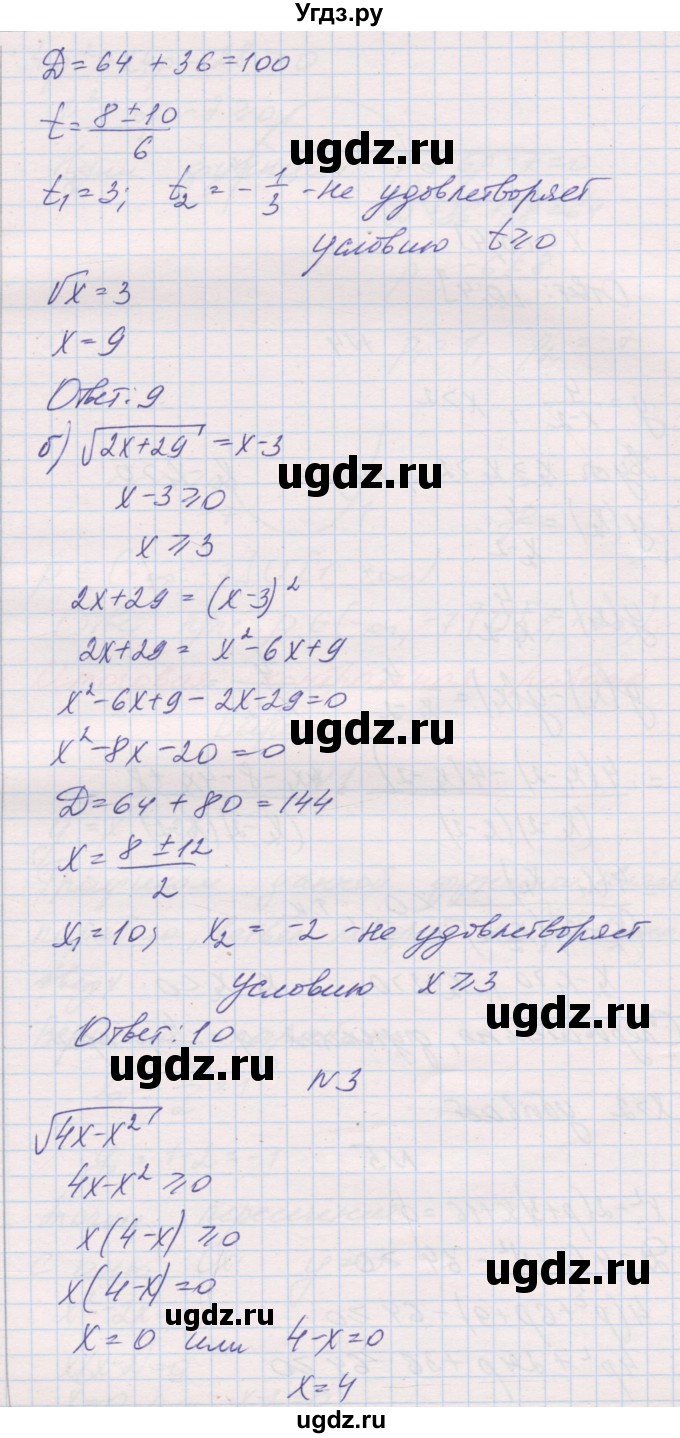 Угдз.ру
Д=64+36=100
t=(8±10)/6
ugdz.ru
t₁=3; t₂=-1/3 -не удовлетворяет
условию t≥0
√x=3
x=9
Ответ: 9
ugdz.ru
б) √(2x+29)=x-3
ugdz.ru
x-3≥0
x≥3
2x+29=(x-3)²
2x+29=x²-6x+9
x²-6x+9-2x-29=0
ugdz.ru
x²-8x-20=0
Д=64+80=144
x=(8±12)/2
x₁=10; x₂=-2 -не удовлетворяет
условию x≥3
ugdz.ru
Ответ: 10
ugdz.ru
N3
√(4x-x²)
4x-x²≥0
x(4-x)≥0
ugdz.ru
x(4-x)=0
ugdz.ru
x=0 или 4-x=0
x=4
ugdz.ru